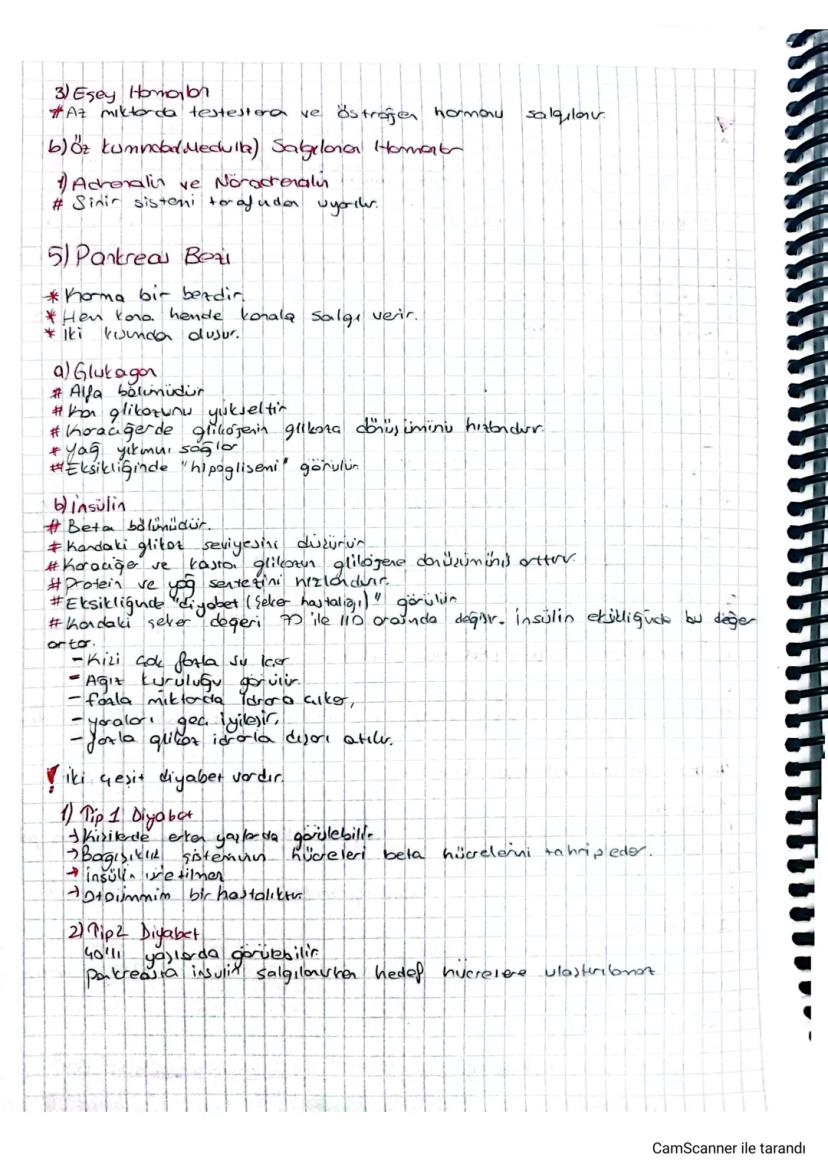 3) Eşey Hormonları
#Az miktarda testesteron ve östrojen hormonu salgılanır.
b) Öz kısmında(Medulla) Salgılanan Hormonlar
1) Adrenalin ve Nöradrenalin
# Sinir sistemi tarafından uyarılır.
5) Pankreas Bezi
* Karma bir bezdir.
* Hem kana hemde kanala salgı verir.
* İki kısımdan oluşur.
a) Glukagon
# Alfa bölümüdür
# Kan glikozunu yükseltir
# Karaciğerde glikojenin glikoza dönüşümünü hızlandırır.
# Yağ yıkımını sağlar
# Eksikliğinde "hipoglisemi" görülür
b) İnsülin
# Beta bölümüdür.
# Kandaki glikoz seviyesini düşürür
# Karaciğer ve kasta glikozun glikojene dönüşümünü arttırır.
# Protein ve yağ sentezini hızlandırır.
# Eksikliğinde "diyabet (şeker hastalığı)" görülür
# Kandaki şeker değeri 70 ile 110 arasında değişir. İnsülin eksikliğinde bu değer
artar.
- Kişi çok fazla su içer
- Ağız kuruluğu görülür.
- fazla miktarda idrara çıkar,
- yaraları geç iyileşir,
- fazla glikoz idrarla dışarı atılır.
! iki çeşit diyabet vardır.
1) Tip 1 Diyabet
→ Kişilerde erken yaşlarda görülebilir.
→ Bağışıklık sisteminin hücreleri beta hücrelerini tahrip eder.
→ insülin üretilmez
→ Otoimmim bir hastalıktır.
2) Tip2 Diyabet
40'lı yaşlarda görülebilir
pankreasta insülin salgılanırken hedef hücrelere ulaştırılamaz
CamScanner ile tarandı